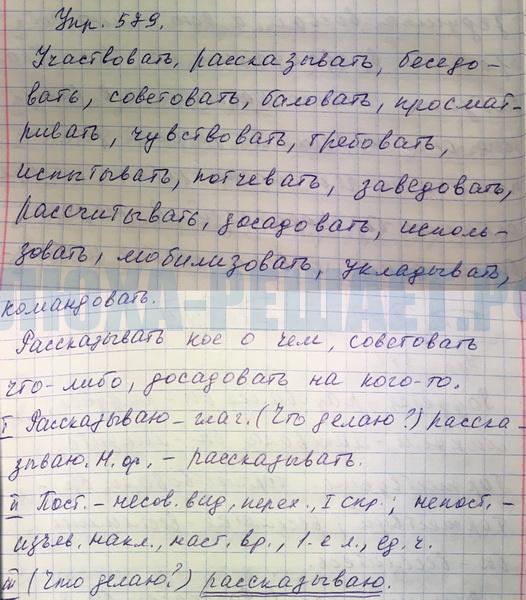 Упр. 579.
Участвовать, рассказывать, беседо-
вать, советовать, баловать, просмат-
ривать, чувствовать, требовать,
испытывать, потчевать, заведовать,
рассчитывать, досадовать, исполь-
зовать, мобилизовать, укладывать,
командовать.
Рассказывать кое о чем, советовать
что-либо, досадовать на кого-то.
I Рассказываю - глаг. (Что делаю?) расска-
зываю. Н.ф. - рассказывать.
II Пост. - несов. вид, перех., I спр.; непост. -
изъяв. накл., наст. вр., 1-е л., ед. ч.
III (Что делаю?) рассказываю.